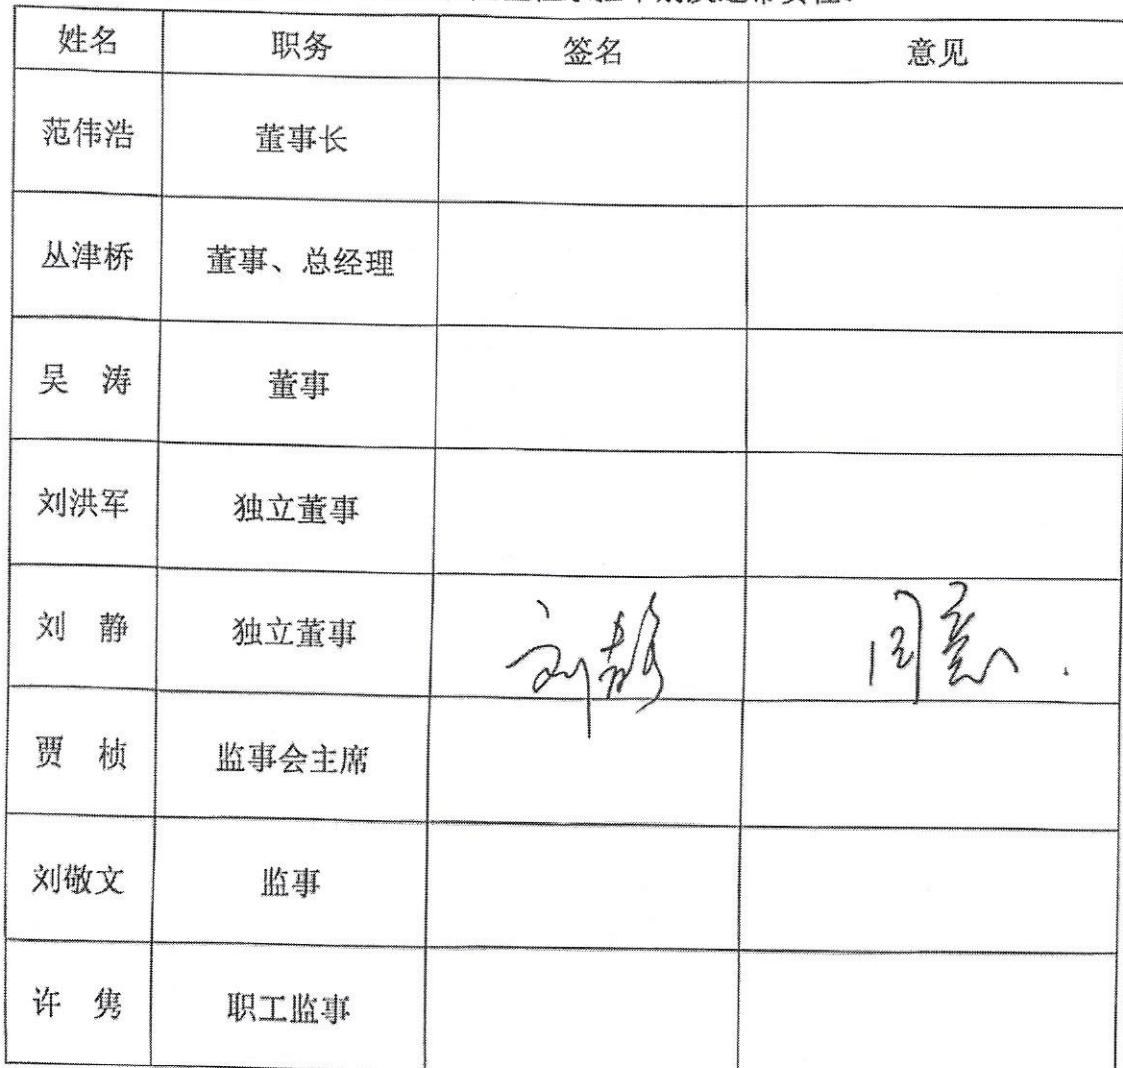 姓名 职务 签名 意见
范伟浩 董事长
丛津桥 董事、总经理
吴 涛 董事
刘洪军 独立董事
刘 静 独立董事 刘静 同意.
贾 桢 监事会主席
刘敬文 监事
许 隽 职工监事